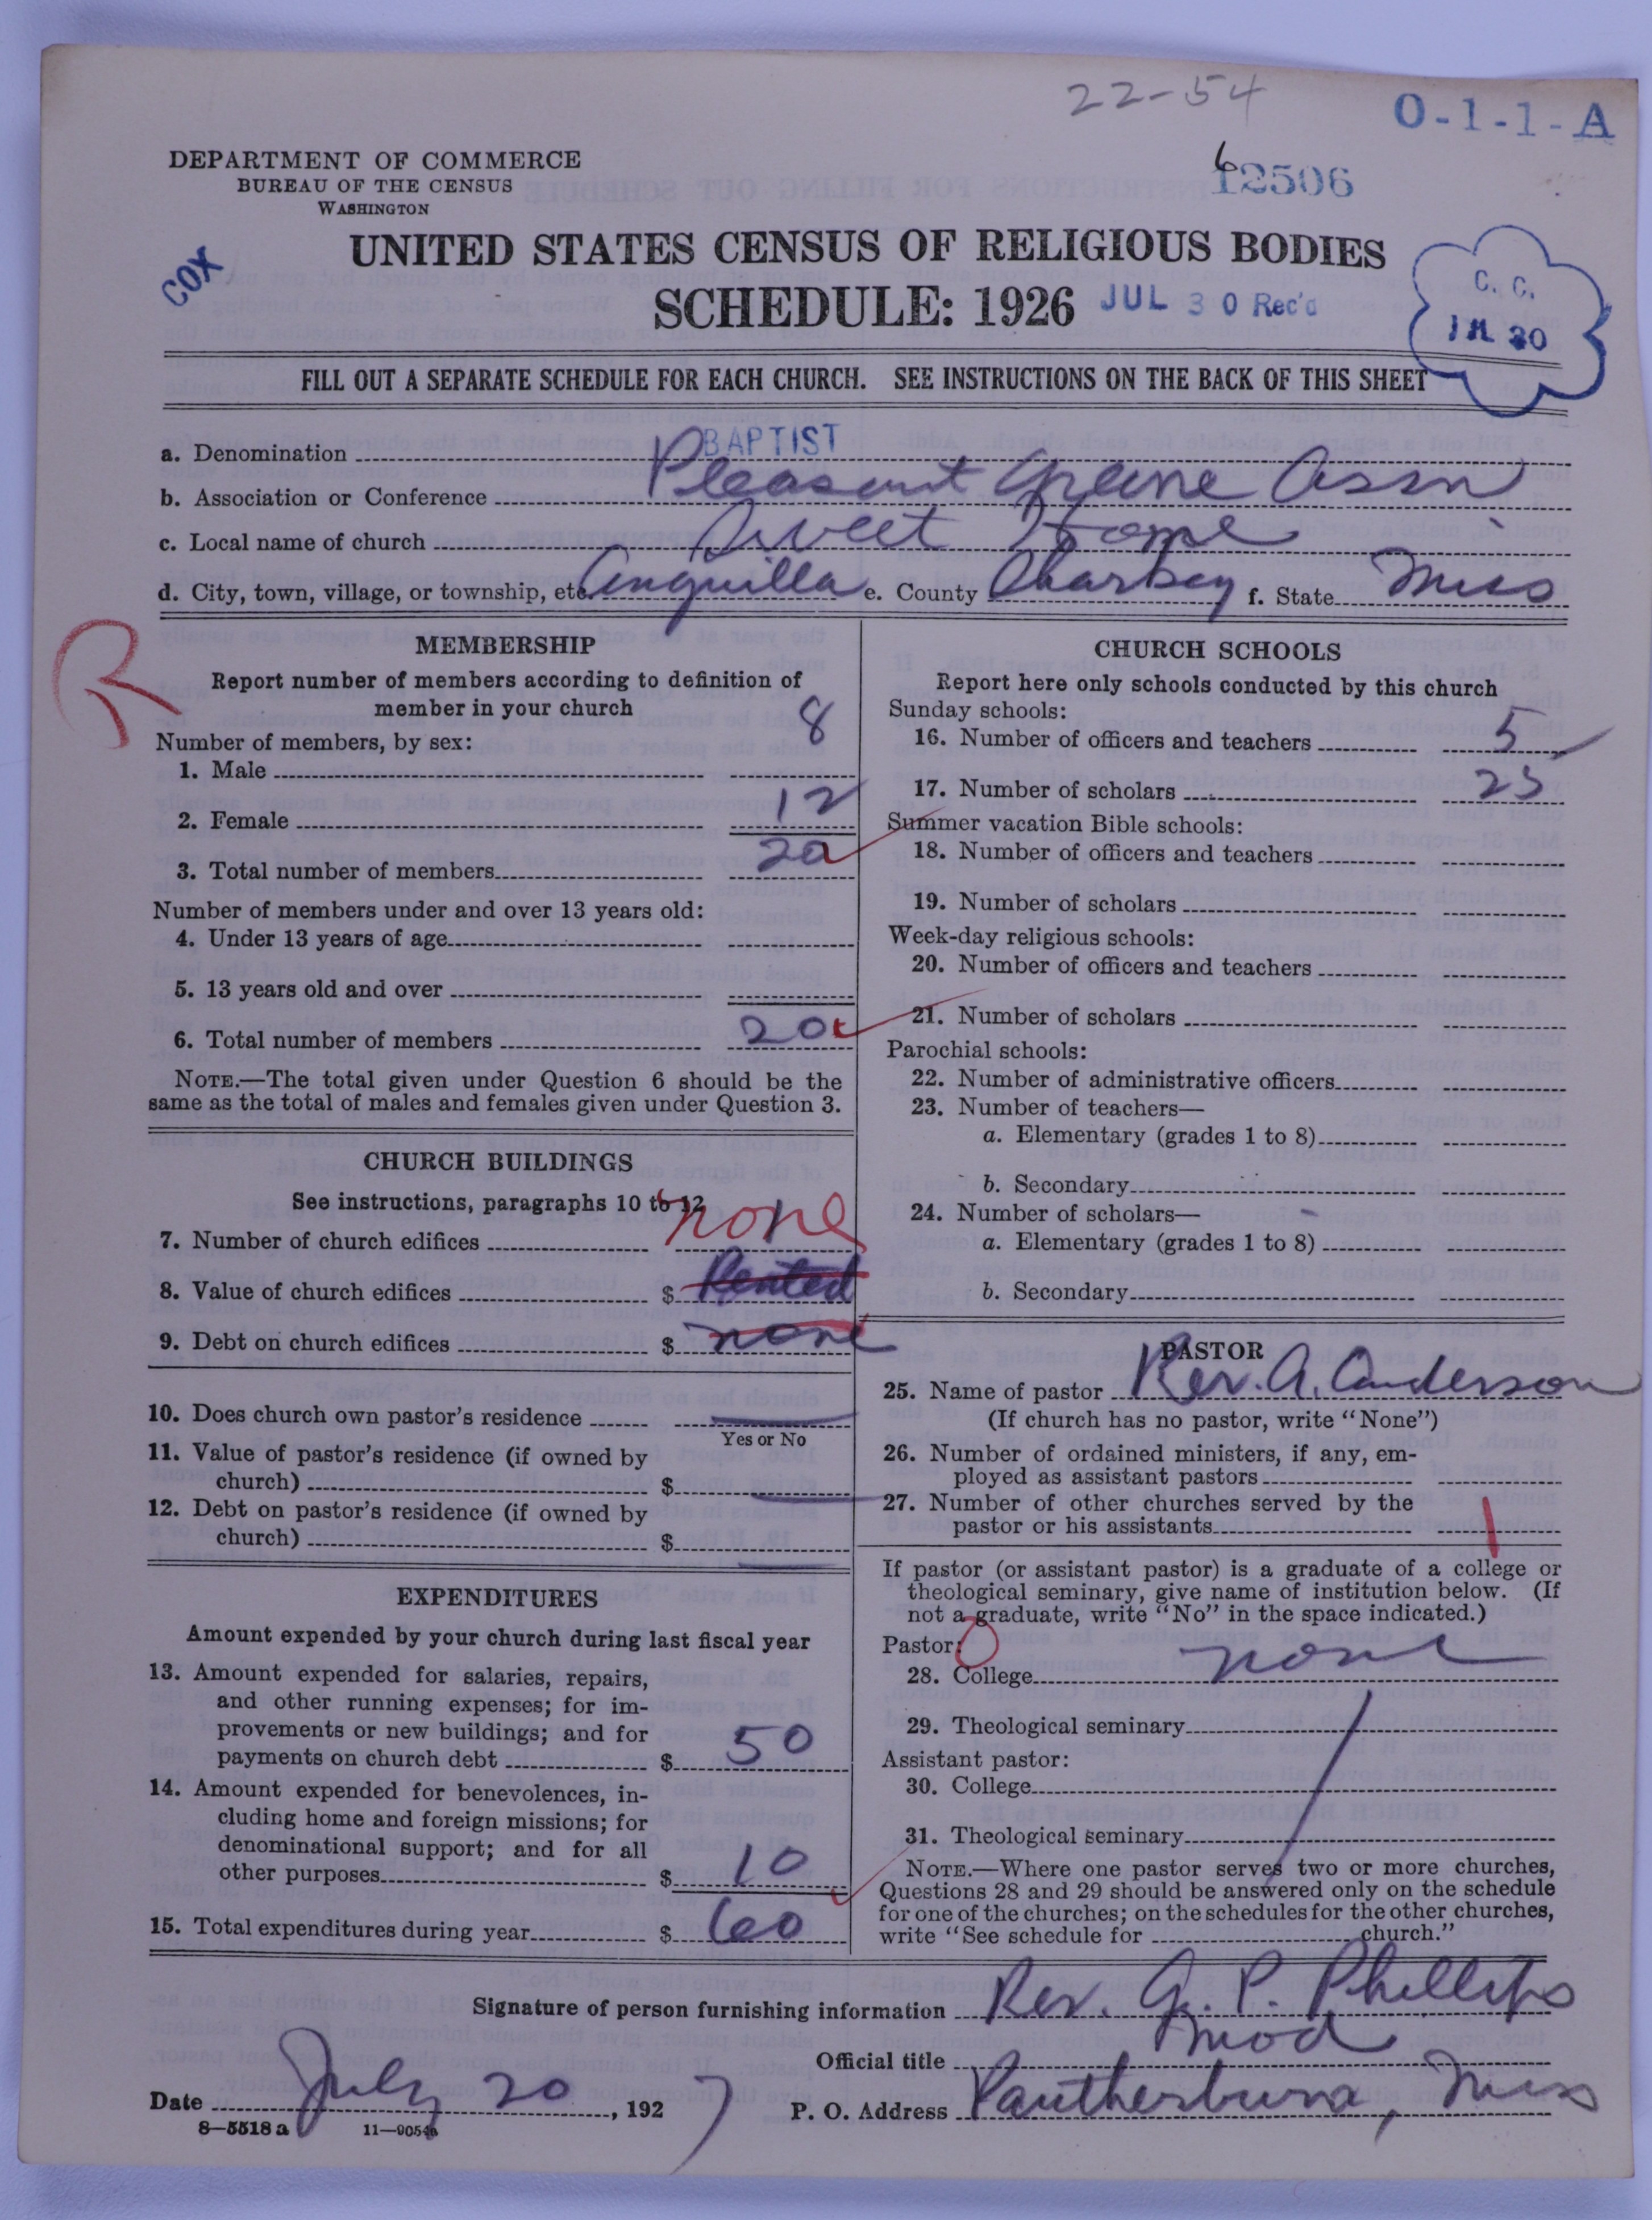 22-54
O-1-1-A
DEPARTMENT OF COMMERCE
BUREAU OF THE CENSUS
WASHINGTON
12506
6
COX
UNITED STATES CENSUS OF RELIGIOUS BODIES
SCHEDULE: 1926
JUL 30 Rec'd
C. C.
30
FILL OUT A SEPARATE SCHEDULE FOR EACH CHURCH. SEE INSTRUCTIONS ON THE BACK OF THIS SHEET
a. Denomination BAPTIST
b. Association or Conference Pleasant Greene Assn
c. Local name of church Sweet Home
d. City, town, village, or township, etc. Anguilla e. County Sharkey f. State Miss
R
MEMBERSHIP
Report number of members according to definition of
member in your church
Number of members, by sex:
1. Male 8
2. Female 12
3. Total number of members 20
Number of members under and over 13 years old:
4. Under 13 years of age
5. 13 years old and over
6. Total number of members 20
NOTE.—The total given under Question 6 should be the
same as the total of males and females given under Question 3.
CHURCH BUILDINGS
See instructions, paragraphs 10 to 12
7. Number of church edifices none
8. Value of church edifices $ Rented
9. Debt on church edifices $ none
10. Does church own pastor's residence
Yes or No
11. Value of pastor's residence (if owned by
church) $
12. Debt on pastor's residence (if owned by
church) $
EXPENDITURES
Amount expended by your church during last fiscal year
13. Amount expended for salaries, repairs,
and other running expenses; for im-
provements or new buildings; and for
payments on church debt $ 50
14. Amount expended for benevolences, in-
cluding home and foreign missions; for
denominational support; and for all
other purposes $ 10
15. Total expenditures during year $ 60
CHURCH SCHOOLS
Report here only schools conducted by this church
Sunday schools:
16. Number of officers and teachers 5
17. Number of scholars 25
Summer vacation Bible schools:
18. Number of officers and teachers
19. Number of scholars
Week-day religious schools:
20. Number of officers and teachers
21. Number of scholars
Parochial schools:
22. Number of administrative officers
23. Number of teachers—
a. Elementary (grades 1 to 8)
b. Secondary
24. Number of scholars—
a. Elementary (grades 1 to 8)
b. Secondary
PASTOR
25. Name of pastor Rev. A. Anderson
(If church has no pastor, write "None")
26. Number of ordained ministers, if any, em-
ployed as assistant pastors
27. Number of other churches served by the
pastor or his assistants 1
If pastor (or assistant pastor) is a graduate of a college or
theological seminary, give name of institution below. (If
not a graduate, write "No" in the space indicated.)
Pastor: 0
28. College none
29. Theological seminary
Assistant pastor:
30. College
31. Theological seminary
NOTE.—Where one pastor serves two or more churches,
Questions 28 and 29 should be answered only on the schedule
for one of the churches; on the schedules for the other churches,
write "See schedule for church."
Signature of person furnishing information Rev. G. P. Phillips
Official title Mod
Date July 20, 1927
P. O. Address Pantherburn, Miss
8—5518a 11—9054a